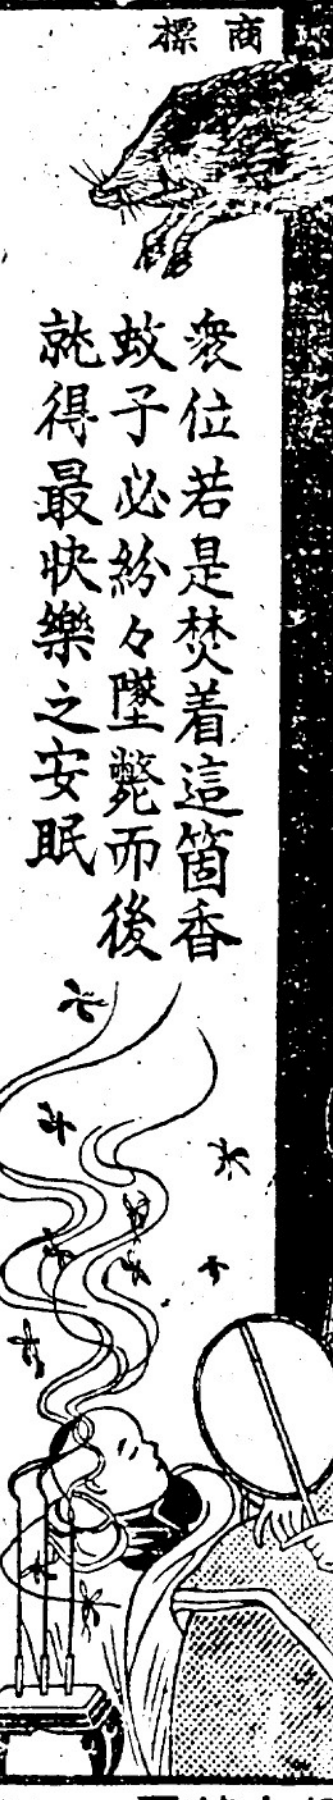 商標
衆位若是焚着這箇香
蚊子必紛々墜斃而後
就得最快樂之安眠